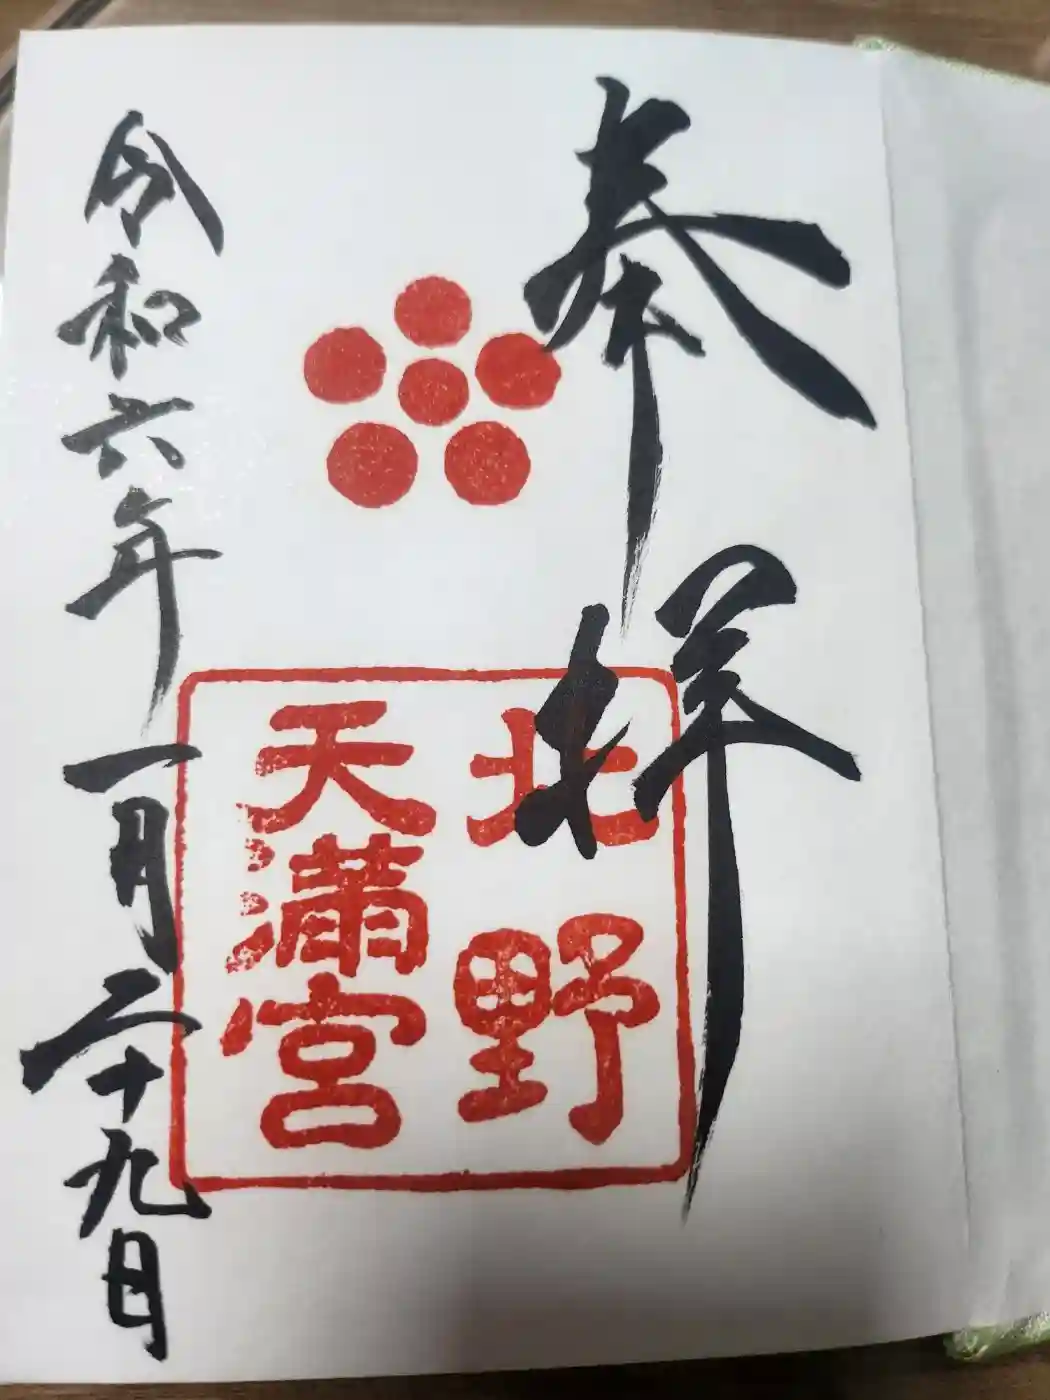 奉拝
北野
天満宮
令和六年一月二十九日